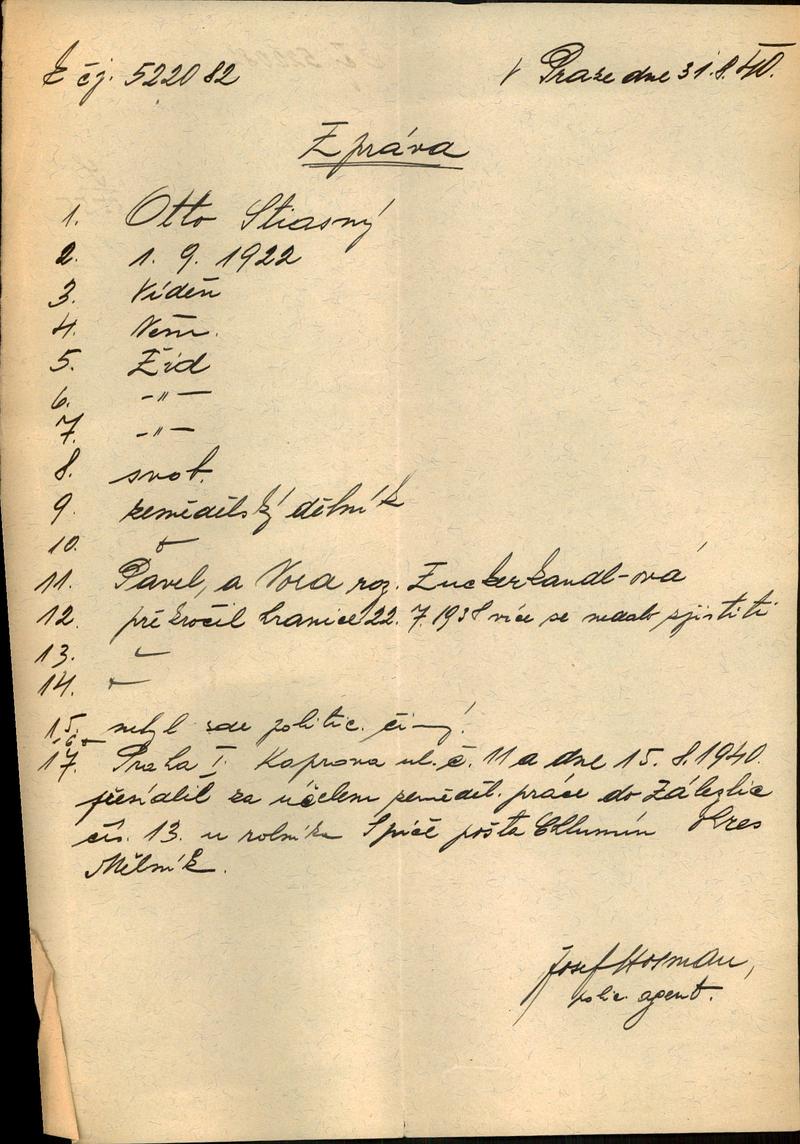 K čj. 522082
V Praze dne 31.8.40.
Zpráva
1. Otto Stiasný
2. 1. 9. 1922
3. Vídeň
4. Něm.
5. Žid
6. -"-
7. -"-
8. svob.
9. zemědělský dělník
10. -
11. Pavel, a roz. Zuckerkandl-ová
12. překročil hranice 22. 7. 1938 více se nedalo zjistiti
13. -
14. -
15. nebyl zde politic. činný!
16. -
17. Praha I. Kaprova ul. č. 11 a dne 15. 8. 1940.
přesídlil za účelem zeměděl. práce do Zálezlic
čís. 13. u rolníka Špičě pošta Chlumín Okres
Mělník.
Josef
polic. agent.